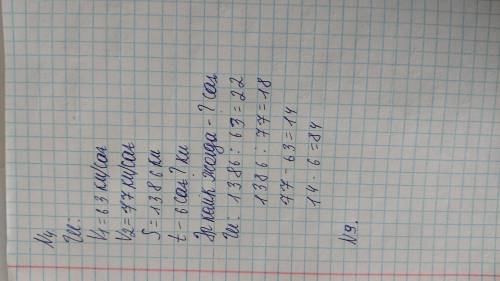 №4
Ш:
V1 = 63 км/сағ
V2 = 77 км/сағ
S = 1386 км
t = 6 сағ ? км
Әр көлік жолда - ? сағ
Ш: 1386 : 63 = 22
1386 : 77 = 18
77 - 63 = 14
14 · 6 = 84
№9.